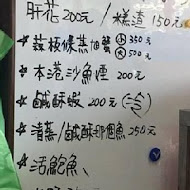 肝花200元/糕渣150元
蒜板條蒸血蟹 小350元 大500元
本港沙魚煙200元
鹹酥蝦200元(冷)
清蒸/鹹酥那個魚250元
活鮑魚、